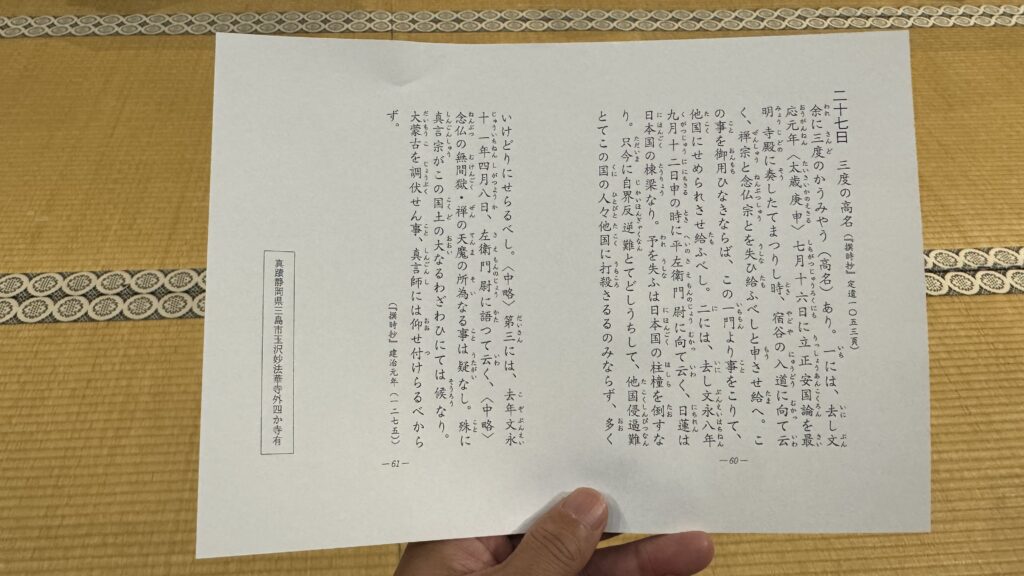 二十七日　三度の高名（『撰時抄』定遺一〇五三頁）
余に三度のかうみやう〈高名〉あり。一には、去し文
応元年〈太歳庚申〉七月十六日に立正安国論を最
明寺殿に奏したてまつりし時、宿谷の入道に向て云
く、禅宗と念仏宗とを失ひ給ふべしと申させ給へ。こ
の事を御用ひなきならば、この一門より事をこりて、
他国にせめられさせ給ふべし。二には、去し文永八年
九月十二日申の時に平左衛門尉に向て云く、日蓮は
日本国の棟梁なり。予を失ふは日本国の柱橦を倒すな
り。只今に自界反逆難とてどしうちして、他国侵逼難
とてこの国の人々他国に打殺さるるのみならず、多く
―60―
いけどりにせらるべし。〈中略〉第三には、去年文永
十一年四月八日、左衛門尉に語つて云く、〈中略〉
念仏の無間獄・禅の天魔の所為なる事は疑なし。殊に
真言宗がこの国土の大なるわざわひにては候なり。
大蒙古を調伏せん事、真言師には仰せ付けらるべから
ず。
（『撰時抄』建治元年〈一二七五〉）
真蹟静岡県三島市玉沢妙法華寺外四か寺有
―61―